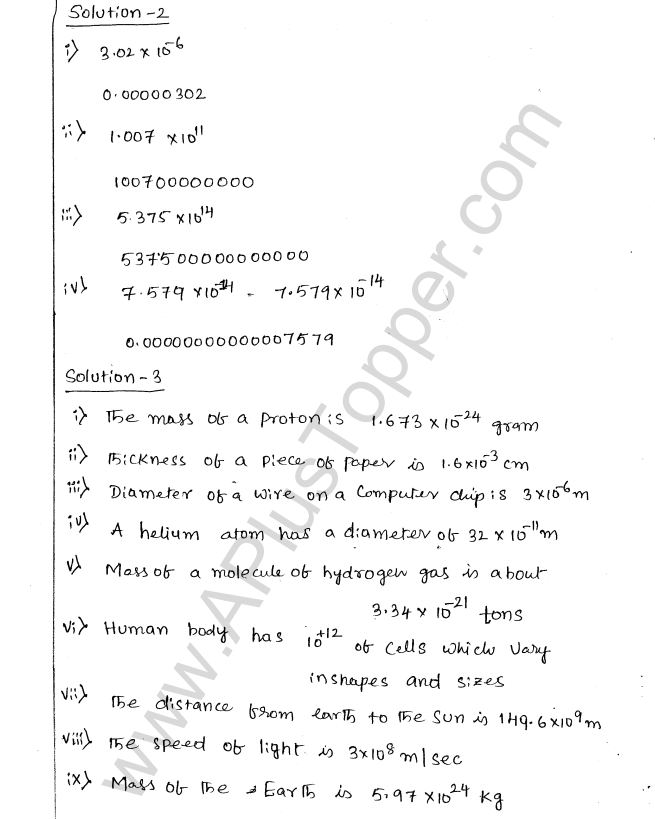 Solution-2
i) 3.02 × 10⁻⁶
0.00000302
ii) 1.007 × 10¹¹
100700000000
iii) 5.375 × 10¹⁴
537500000000000
iv) 7.579 × 10⁻¹⁴ = 7.579 × 10⁻¹⁴
0.00000000000007579
Solution-3
i) The mass of a proton is 1.673 × 10⁻²⁴ gram
ii) Thickness of a piece of paper is 1.6×10⁻³ cm
iii) Diameter of a wire on a Computer chip is 3×10⁻⁶ m
iv) A helium atom has a diameter of 32 × 10⁻¹¹ m
v) Mass of a molecule of hydrogen gas is about
3.34 × 10⁻²¹ tons
vi) Human body has 10⁺¹² of cells which vary
in shapes and sizes
vii) The distance from earth to the Sun is 149.6×10⁹ m
viii) The speed of light is 3×10⁸ m/sec
ix) Mass of the Earth is 5.97 × 10²⁴ kg
www.APlusTopper.com